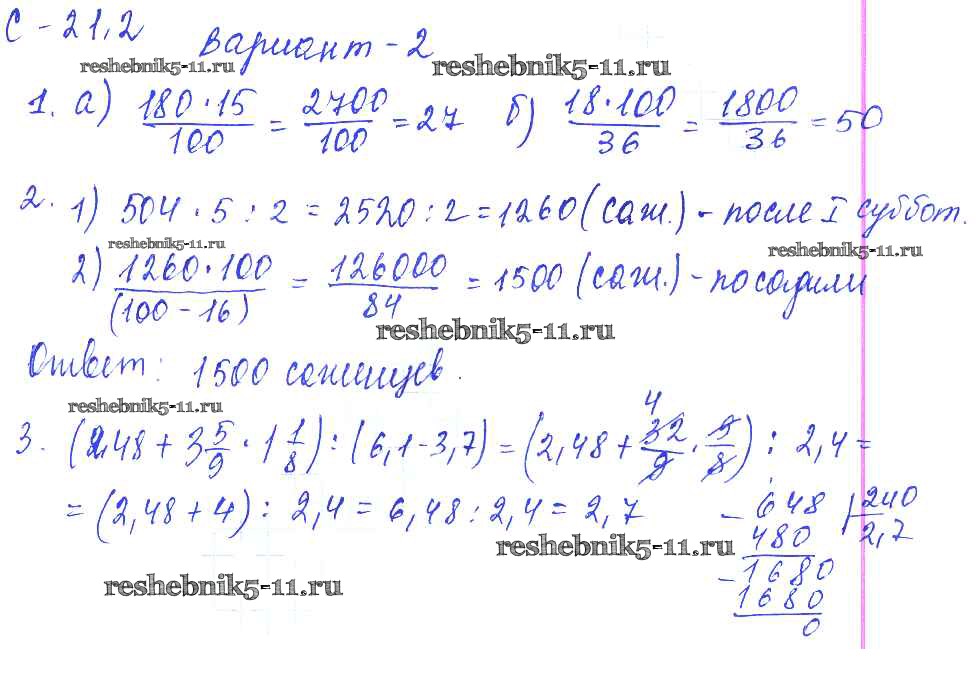 С - 21,2
Вариант - 2
reshebnik5-11.ru reshebnik5-11.ru
1. а) 180 · 15 / 100 = 2700 / 100 = 27 б) 18 · 100 / 36 = 1800 / 36 = 50
2. 1) 504 · 5 : 2 = 2520 : 2 = 1260 (саж.) - после I суббот.
reshebnik5-11.ru reshebnik5-11.ru
2) 1260 · 100 / (100 - 16) = 126000 / 84 = 1500 (саж.) - посадили
reshebnik5-11.ru
Ответ: 1500 саженцев.
reshebnik5-11.ru
3. (2,48 + 3 5/9 · 1 1/8) : (6,1 - 3,7) = (2,48 + 32/9 · 9/8) : 2,4 =
4
= (2,48 + 4) : 2,4 = 6,48 : 2,4 = 2,7
- 648 | 240
480 2,7
- 1680
1680
0
reshebnik5-11.ru
reshebnik5-11.ru